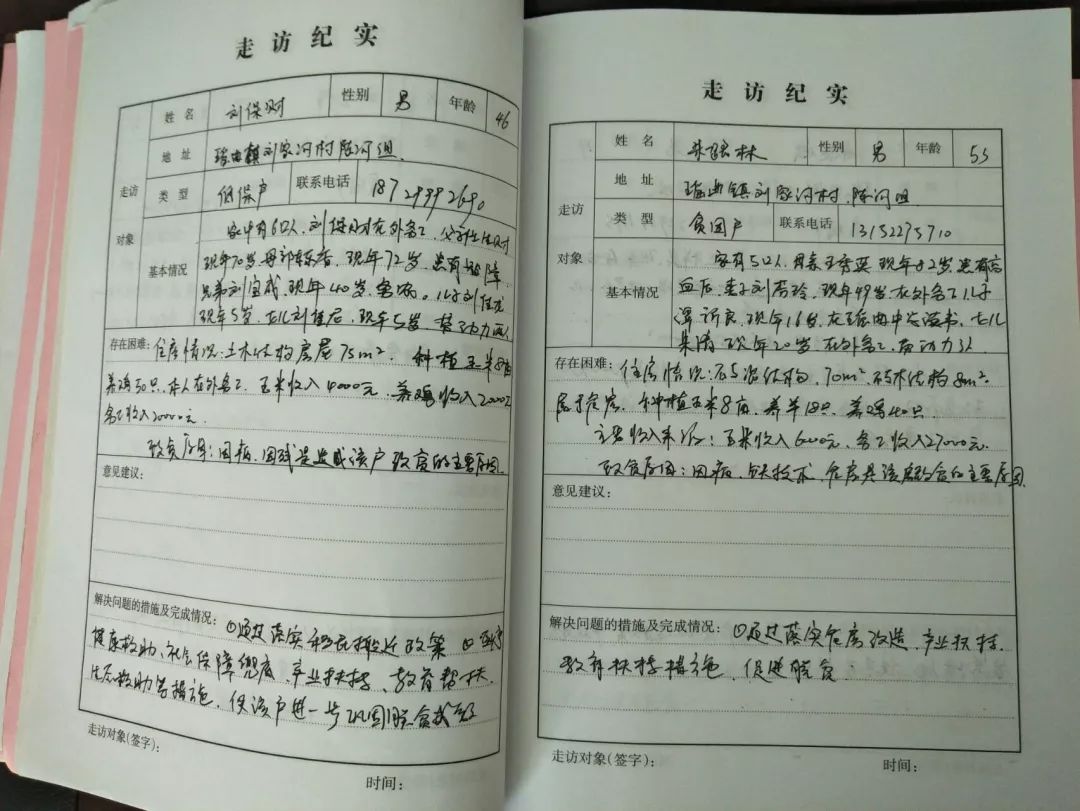 走访纪实
姓名 刘保财 性别 男 年龄 46
地址 瑶曲镇刘家河村陈河组
走访对象
类型 低保户 联系电话 18729992690
基本情况
家中有6口人,刘保财在外务工,父
现年70岁,母 现年72岁,患有 障
兄弟刘宝成,现年40岁,务 。儿子刘
现年5岁,女儿刘 ,现年5岁,
存在困难:住房情况:土木结构房屋75m²。种植玉米8亩
养鸡50只,本人在外务工,玉米收入4000元,养鸡收入2000元
务工收入20000元。
致贫原因:因病,因残是造成该户致贫的主要原因
意见建议:
解决问题的措施及完成情况:①通过落实移民搬迁政策 ②
健康救助、社会保障兜底,产业扶持,教育帮扶
生态救助等措施,使该户进一步巩固脱贫成
走访对象(签字):
时间:
走访纪实
姓名 林 性别 男 年龄 55
地址 瑶曲镇刘家河村陈河组
走访对象
类型 贫困户 联系电话 13152275710
基本情况
家有5口人,母亲王秀英 现年82岁,患有高
血压,妻子刘 玲,现年49岁,在外务工,儿子
现年16岁,在瑶曲中学读书,女儿
现年20岁,在外务工,有劳力3人
存在困难:住房情况: 结构,70m²,砖木结构8m²
属于危房。种植玉米8亩,养羊18只,养鸡40只
主要收入来源:玉米收入6000元,务工收入27000元.
致贫原因:因病,缺技术,危房是该户致贫的主要原因
意见建议:
解决问题的措施及完成情况:①通过落实危房改造,产业扶持,
教育扶持措施,促进脱贫
走访对象(签字):
时间: